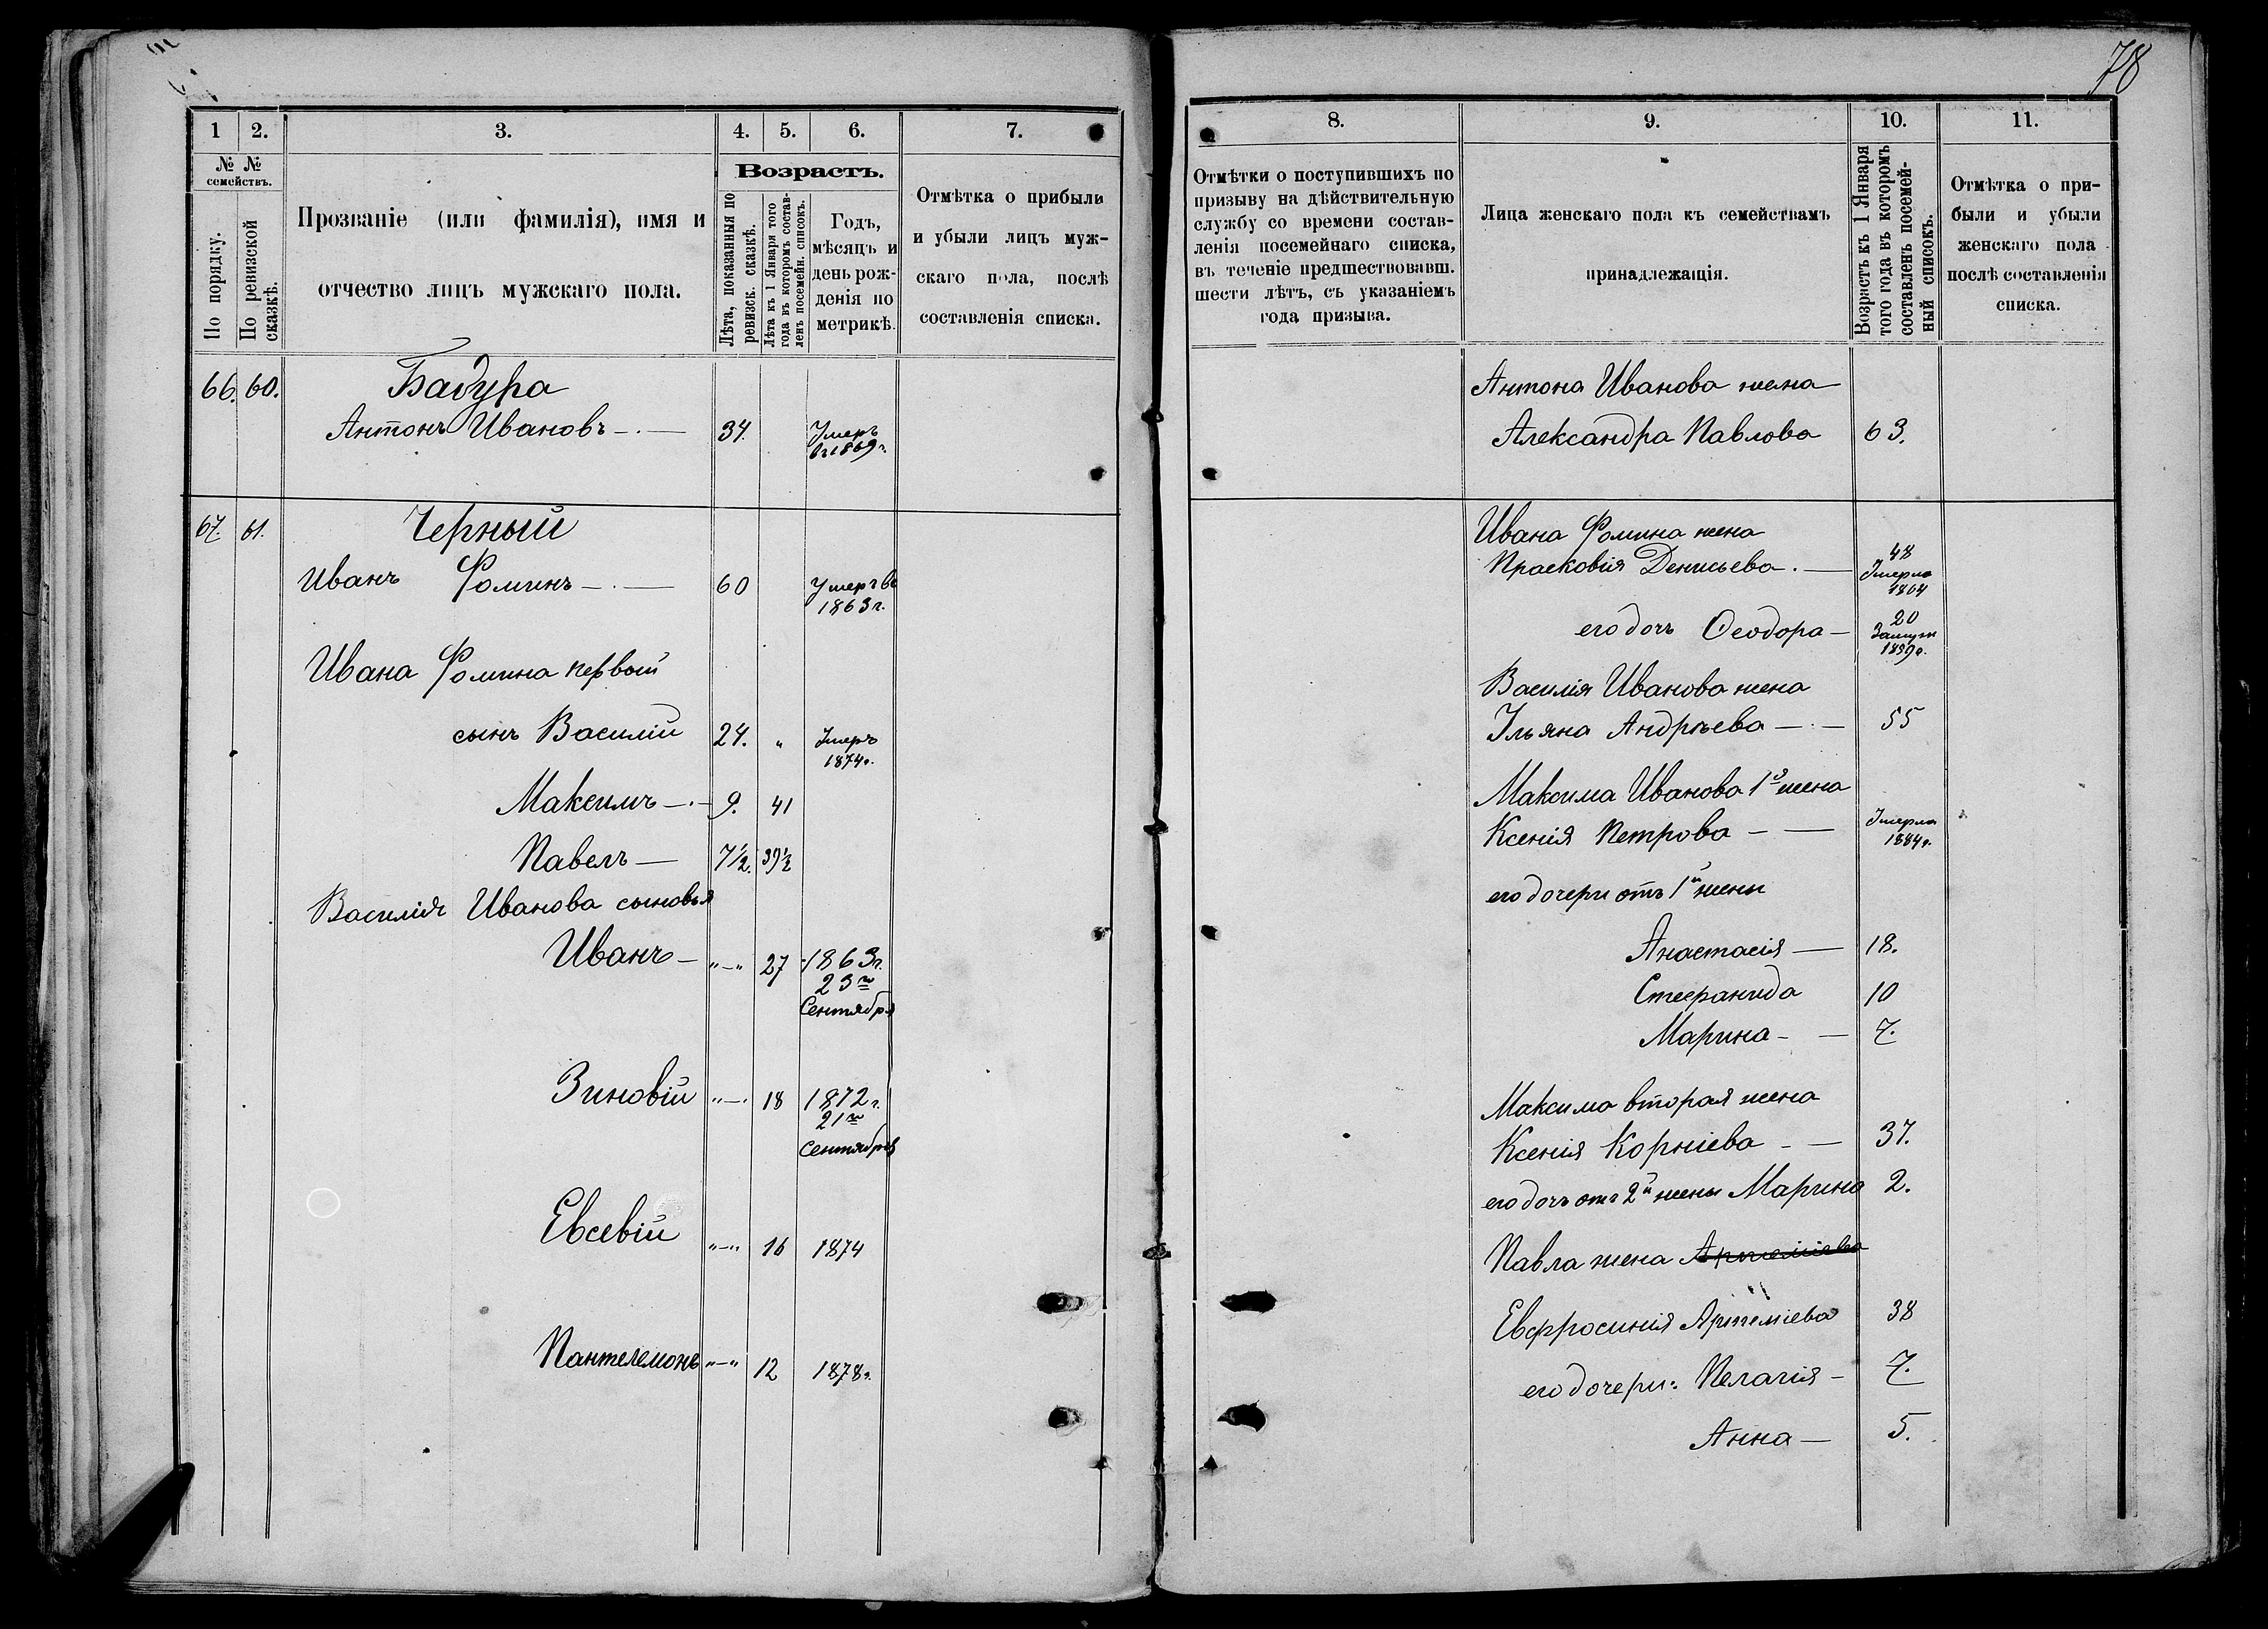 78
1
2.
3.
4.
5.
6.
7.
№ №
семействъ.
По порядку.
По ревизской
сказкѣ.
Прозваніе (или фамилія), имя и
отчество лицъ мужскаго пола.
Возрастъ.
Лѣта, показанныя по
ревизск. сказкѣ.
Лѣта къ 1 Января того
года въ которомъ состав-
ленъ посемейн. списокъ.
Годъ,
мѣсяцъ и
день рож-
денія по
метрикѣ.
Отмѣтка о прибыли
и убыли лицъ муж-
скаго пола, послѣ
составленія списка.
66. 60. Бадура
Антонъ Ивановъ — . — 34. Умеръ
въ 1869 г.
67. 61. Черный
Иванъ Фоминъ — . — 60 Умеръ въ
1863 г.
Ивана Фомина первой
сынъ Василій 24. " Умеръ
1874 г.
Максимъ — . — 9. 41
Павелъ — 7½. 39½
Василія Иванова сыновья
Иванъ — "—" 27 1863 г.
23го
Сентября
Зиновій "—" 18 1872 г.
21го
Сентября
Евсевій "—" 16 1874
Пантелемонъ "—" 12 1878 г.
8.
9.
10.
11.
Отмѣтки о поступившихъ по
призыву на дѣйствительную
службу со времени состав-
ленія посемейнаго списка,
въ теченіе предшествовавш.
шести лѣтъ, съ указаніемъ
года призыва.
Лица женскаго пола къ семействамъ
принадлежащія.
Возрастъ къ 1 Января
того года въ которомъ
составленъ посемей-
ный списокъ.
Отмѣтка о при-
были и убыли
женскаго пола
послѣ составленія
списка.
Антона Иванова жена
Александра Павлова 63.
Ивана Фомина жена
Прасковія Денисьева . — 48
Умерла
1864
его дочь Ѳеодора — 20
Замуж
1859 г.
Василія Иванова жена
Ульяна Андрѣева — . — 55
Максима Иванова 1я жена
Ксенія Петрова — — Умерла
1884 г.
его дочери отъ 1й жены
Анастасія — 18.
Стефанида 10
Марина — — 7.
Максима вторая жена
Ксенія Корніева — — 37.
его дочь отъ 2й жены Марина 2.
Павла жена Артеміева
Евфросинія Артеміева 38
его дочери: Пелагія — 7.
Анна — 5.